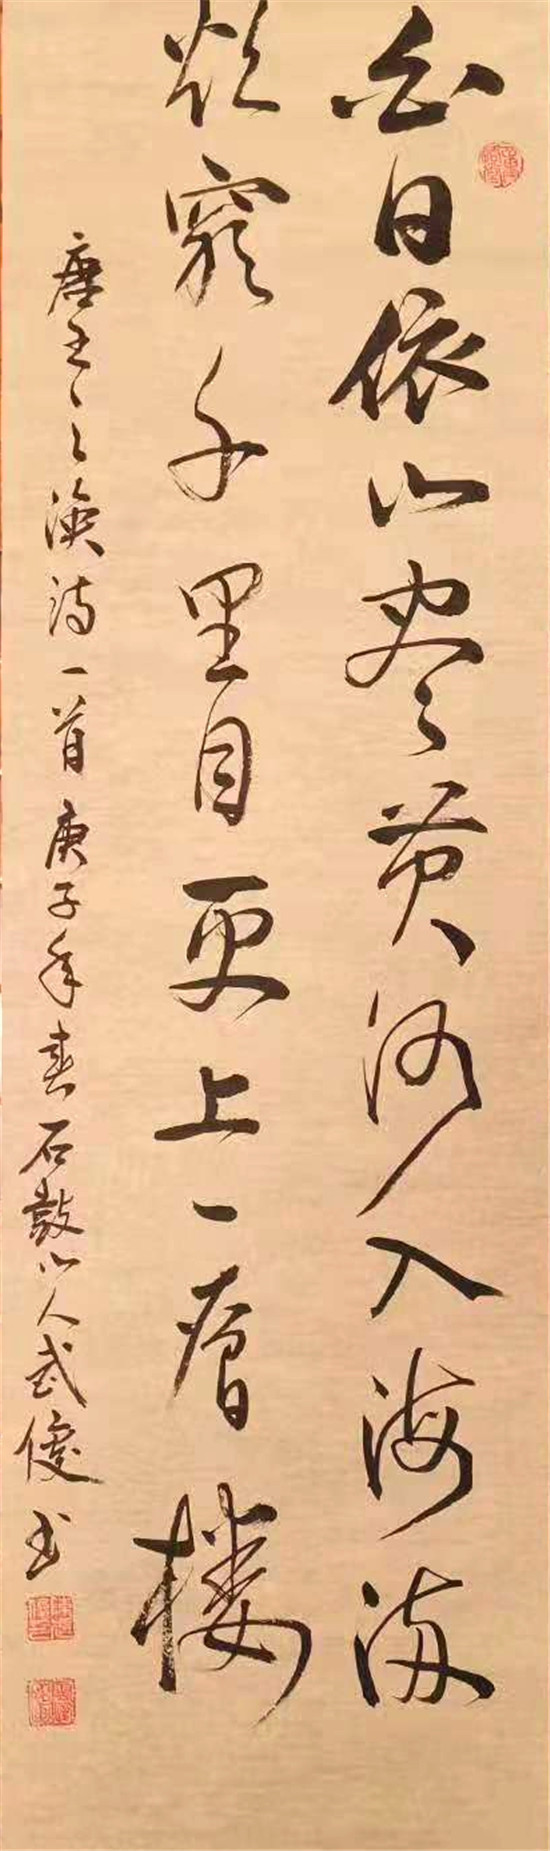 白日依山尽黄河入海流
欲窮千里目更上一層楼
唐王之涣诗一首庚子年春石鼓山人武俊书